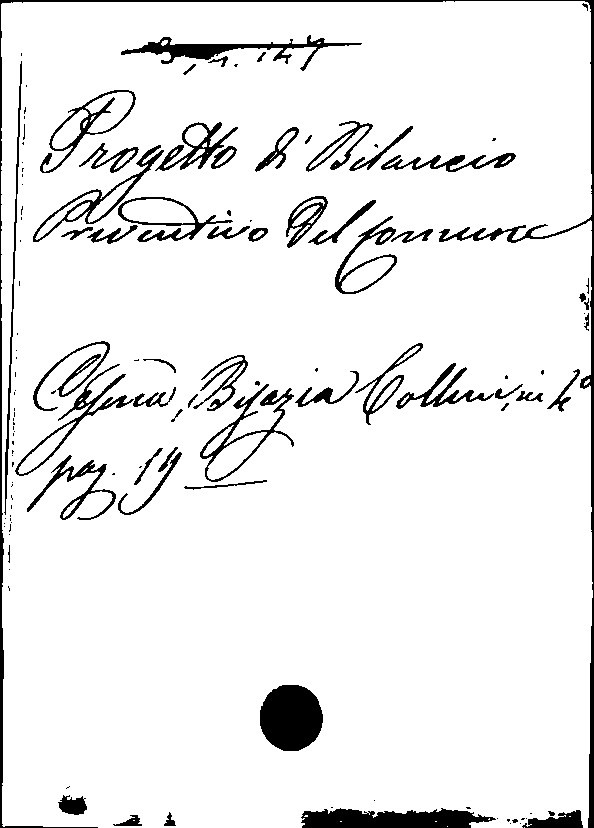 3, n. 147
Progetto di Bilancio
Preventivo Del Comune
Cesena, Bisazia Collini, in 4º
pag. 19